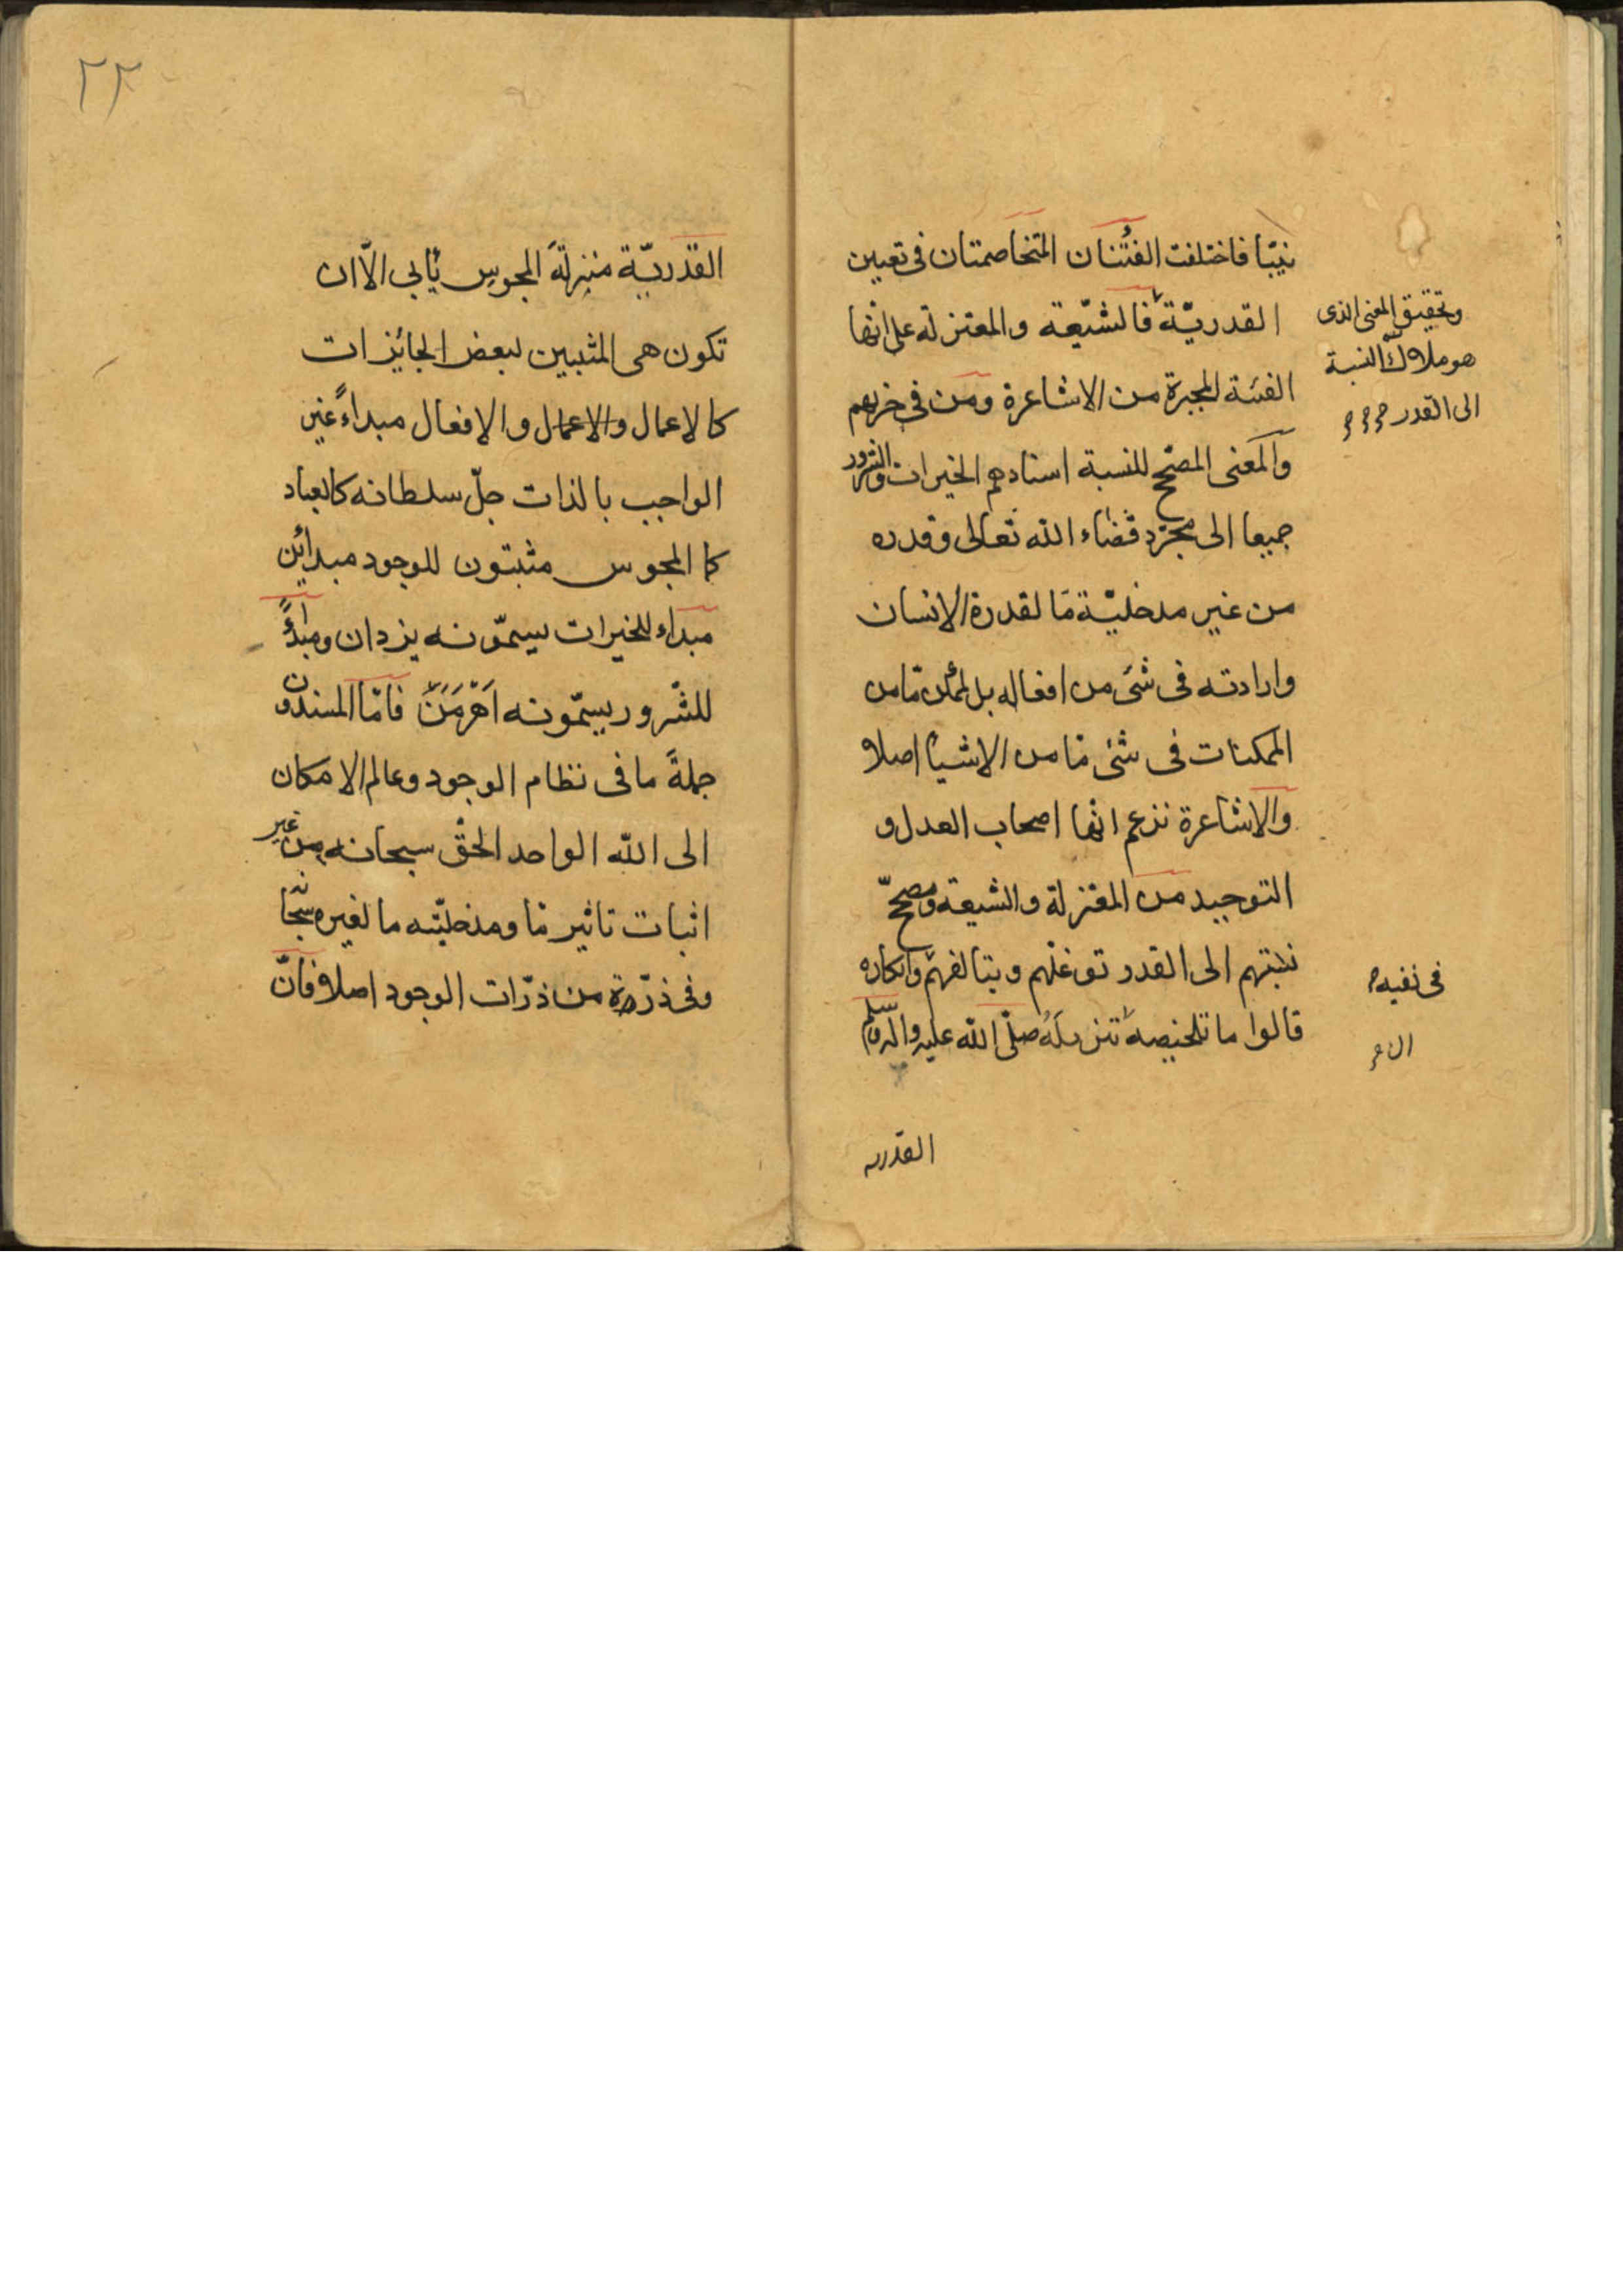 نبيّا فاختلفت الفئتان المتخاصمتان فى تعيين
القدريّة فالشيّعة والمعتزلة على انها
الفئة المجبرة من الاشاعرة ومن فى حزبهم
والمعنى المصحّح للنسبة اسنادهم الخيرات والشرور
جميعا الى مجرّد قضاء الله تعالى وقدره
من غير مدخليّة مّا لقدرة الانسان
وارادته فى شئ من افعاله بل لممكن مّا من
الممكنات فى شئ مّا من الاشيأ اصلا
والاشاعرة تزعم انها اصحاب العدل و
التوحيد من المعتزلة والشيعة ومصحّح
نسبتهم الى القدر توغلهم وبتالغهم وانكاره
قالوا ما تلخيصه تنزيله صلّى الله عليه واله وسلم
القدريه
وتحقيق المعنى الذى
هو ملاك النسبة
الى القدر
فى نفيه
ان
٢٢
القدريّة منزلة المجوس يأبى الّا ان
تكون هى المثبين لبعض الجائزات
كالاعمال والاعمال والافعال مبداءً غير
الواجب بالذات جلّ سلطانه كالعباد
كما المجوس مثبتون للوجود مبدائن
مبداء للخيرات يسمّونه يزدان ومبداءً
للشّرور يسمّونه اَهْرِمَنَ فامّا المسندون
جملةً ما فى نظام الوجود وعالم الامكان
الى الله الواحد الحقّ سبحانه من غير
اثبات تاثير مّا ومدخليّته ما لغيره سبحانه
وفى ذرّة من ذرّات الوجود اصلا فانّ